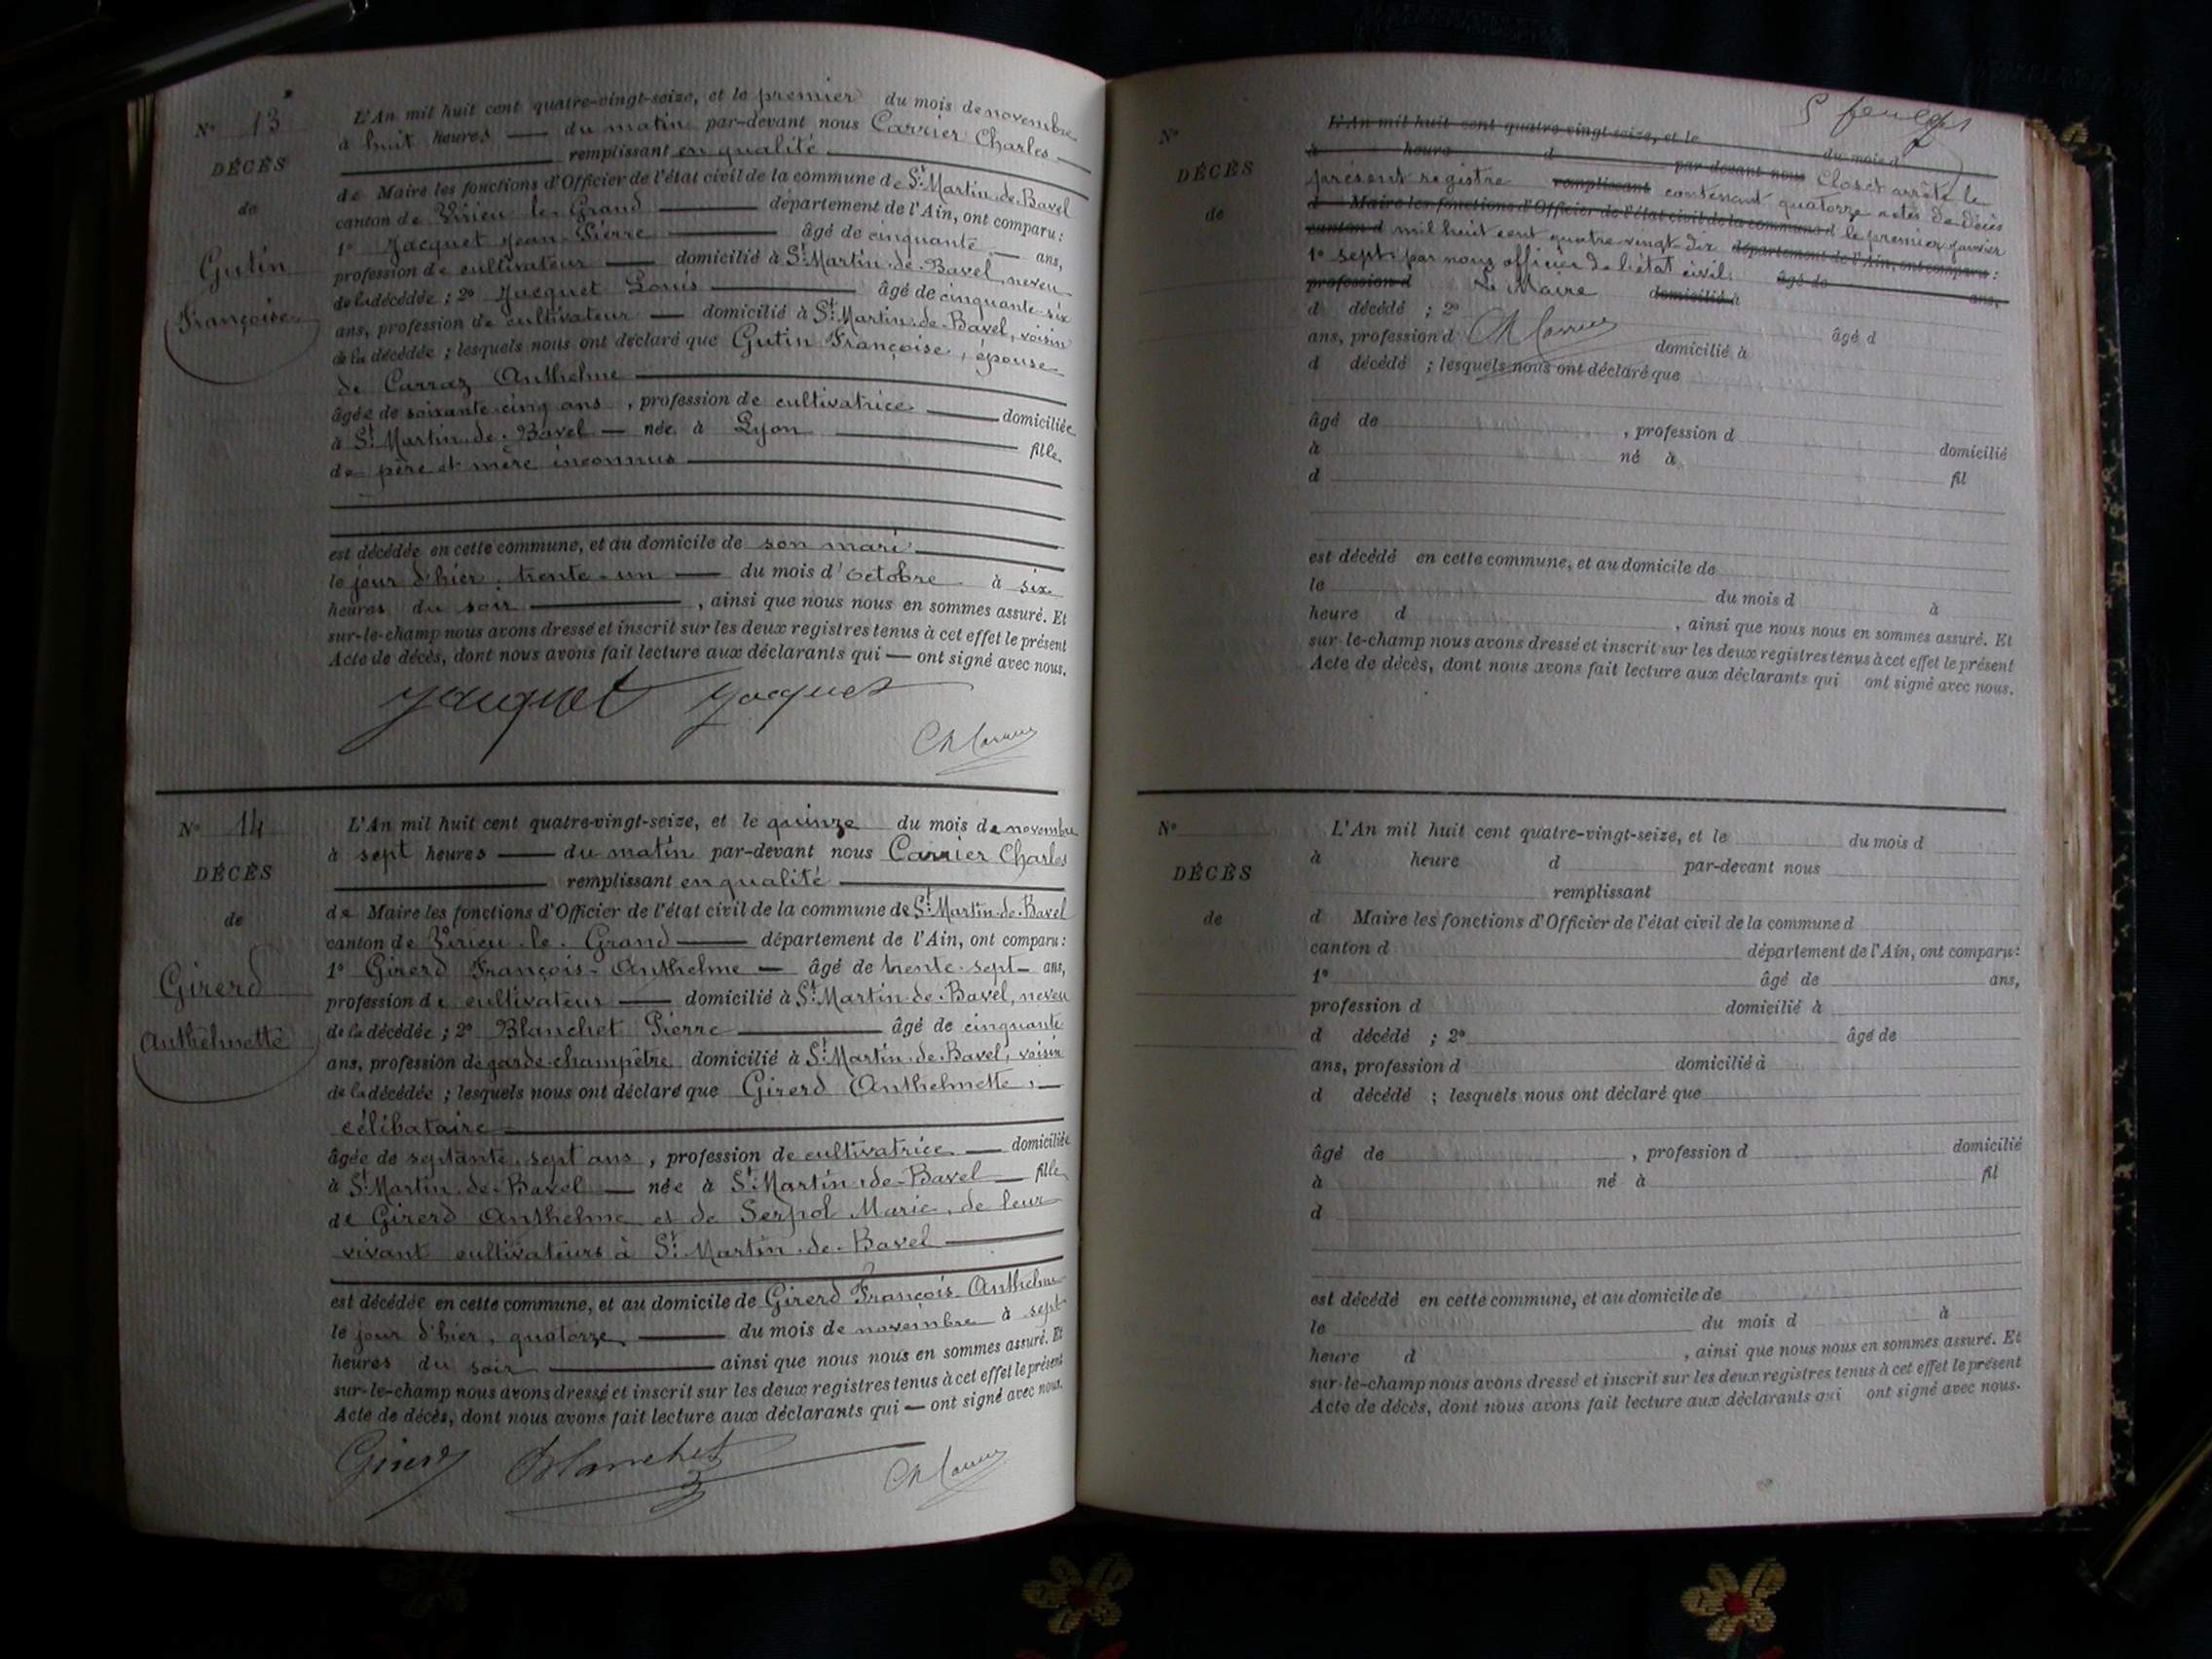 N° 13
DÉCÈS
de
Gutin
Françoise
L'An mil huit cent quatre-vingt-seize, et le premier du mois de novembre
à huit heures — du matin par-devant nous Carrier Charles —
remplissant en qualité
de Maire les fonctions d'Officier de l'état civil de la commune de St Martin-de-Bavel
canton de Virieu le Grand — département de l'Ain, ont comparu :
1° Jacquet Jean-Pierre — âgé de cinquante — ans,
profession de cultivateur — domicilié à St Martin-de-Bavel, neveu
de la décédée ; 2° Jacquet Louis — âgé de cinquante-six
ans, profession de cultivateur — domicilié à St Martin-de-Bavel, voisin
de la décédée ; lesquels nous ont déclaré que Gutin Françoise, épouse
de Carraz Anthelme
âgée de soixante-cinq ans, profession de cultivatrice — domiciliée
à St Martin-de-Bavel — née à Lyon — fille
de père et mère inconnus
est décédée en cette commune, et au domicile de son mari
le jour d'hier, trente-un — du mois d'octobre à six
heures du soir —, ainsi que nous nous en sommes assuré. Et
sur-le-champ nous avons dressé et inscrit sur les deux registres tenus à cet effet le présent
Acte de décès, dont nous avons fait lecture aux déclarants qui — ont signé avec nous.
Jacquet Jacquet
Ch Carrier
N° 14
DÉCÈS
de
Girerd
Anthelmette
L'An mil huit cent quatre-vingt-seize, et le quinze du mois de novembre
à sept heures — du matin par-devant nous Carrier Charles
remplissant en qualité
de Maire les fonctions d'Officier de l'état civil de la commune de St Martin-de-Bavel
canton de Virieu-le-Grand — département de l'Ain, ont comparu :
1° Girerd François-Anthelme — âgé de trente-sept — ans,
profession de cultivateur — domicilié à St Martin-de-Bavel, neveu
de la décédée ; 2° Blanchet Pierre — âgé de cinquante
ans, profession de garde-champêtre domicilié à St Martin-de-Bavel, voisin
de la décédée ; lesquels nous ont déclaré que Girerd Anthelmette, —
célibataire
âgée de septante-sept ans, profession de cultivatrice — domiciliée
à St Martin-de-Bavel — née à St Martin-de-Bavel — fille
de Girerd Anthelme et de Serpol Marie, de leur
vivant cultivateurs à St Martin-de-Bavel
est décédée en cette commune, et au domicile de Girerd François-Anthelme
le jour d'hier, quatorze — du mois de novembre à sept
heures du soir — ainsi que nous nous en sommes assuré. Et
sur-le-champ nous avons dressé et inscrit sur les deux registres tenus à cet effet le présent
Acte de décès, dont nous avons fait lecture aux déclarants qui — ont signé avec nous.
Girerd Blanchet
Ch Carrier
N°
DÉCÈS
de
L'An mil huit cent quatre-vingt-seize, et le du mois d
à heure d par-devant nous Clos et arrêté le
présent registre remplissant contenant quatorze actes de décès
d Maire les fonctions d'Officier de l'état civil de la commune d le premier janvier
canton d mil huit cent quatre vingt dix département de l'Ain, ont comparu :
1° sept par nous officier de l'état civil. âgé de ans,
profession d Le Maire domicilié à
d décédé ; 2° âgé d
ans, profession d Ch Carrier domicilié à
d décédé ; lesquels nous ont déclaré que
âgé de , profession d domicilié
à né à
d fil
est décédé en cette commune, et au domicile de
le du mois d à
heure d , ainsi que nous nous en sommes assuré. Et
sur-le-champ nous avons dressé et inscrit sur les deux registres tenus à cet effet le présent
Acte de décès, dont nous avons fait lecture aux déclarants qui ont signé avec nous.
N°
DÉCÈS
de
L'An mil huit cent quatre-vingt-seize, et le du mois d
à heure d par-devant nous
remplissant
d Maire les fonctions d'Officier de l'état civil de la commune d
canton d département de l'Ain, ont comparu :
1° âgé de ans,
profession d domicilié à
d décédé ; 2° âgé de
ans, profession d domicilié à
d décédé ; lesquels nous ont déclaré que
âgé de , profession d domicilié
à né à fil
d
est décédé en cette commune, et au domicile de
le du mois d à
heure d , ainsi que nous nous en sommes assuré. Et
sur-le-champ nous avons dressé et inscrit sur les deux registres tenus à cet effet le présent
Acte de décès, dont nous avons fait lecture aux déclarants qui ont signé avec nous.